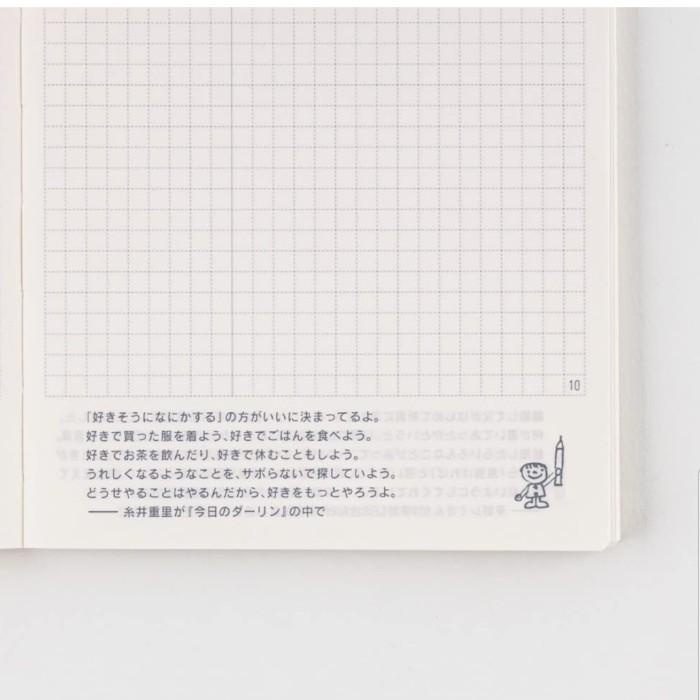 10
「好きそうになにかする」の方がいいに決まってるよ。
好きで買った服を着よう、好きでごはんを食べよう。
好きでお茶を飲んだり、好きで休むこともしよう。
うれしくなるようなことを、サボらないで探していよう。
どうせやることはやるんだから、好きをもっとやろうよ。
── 糸井重里が『今日のダーリン』の中で